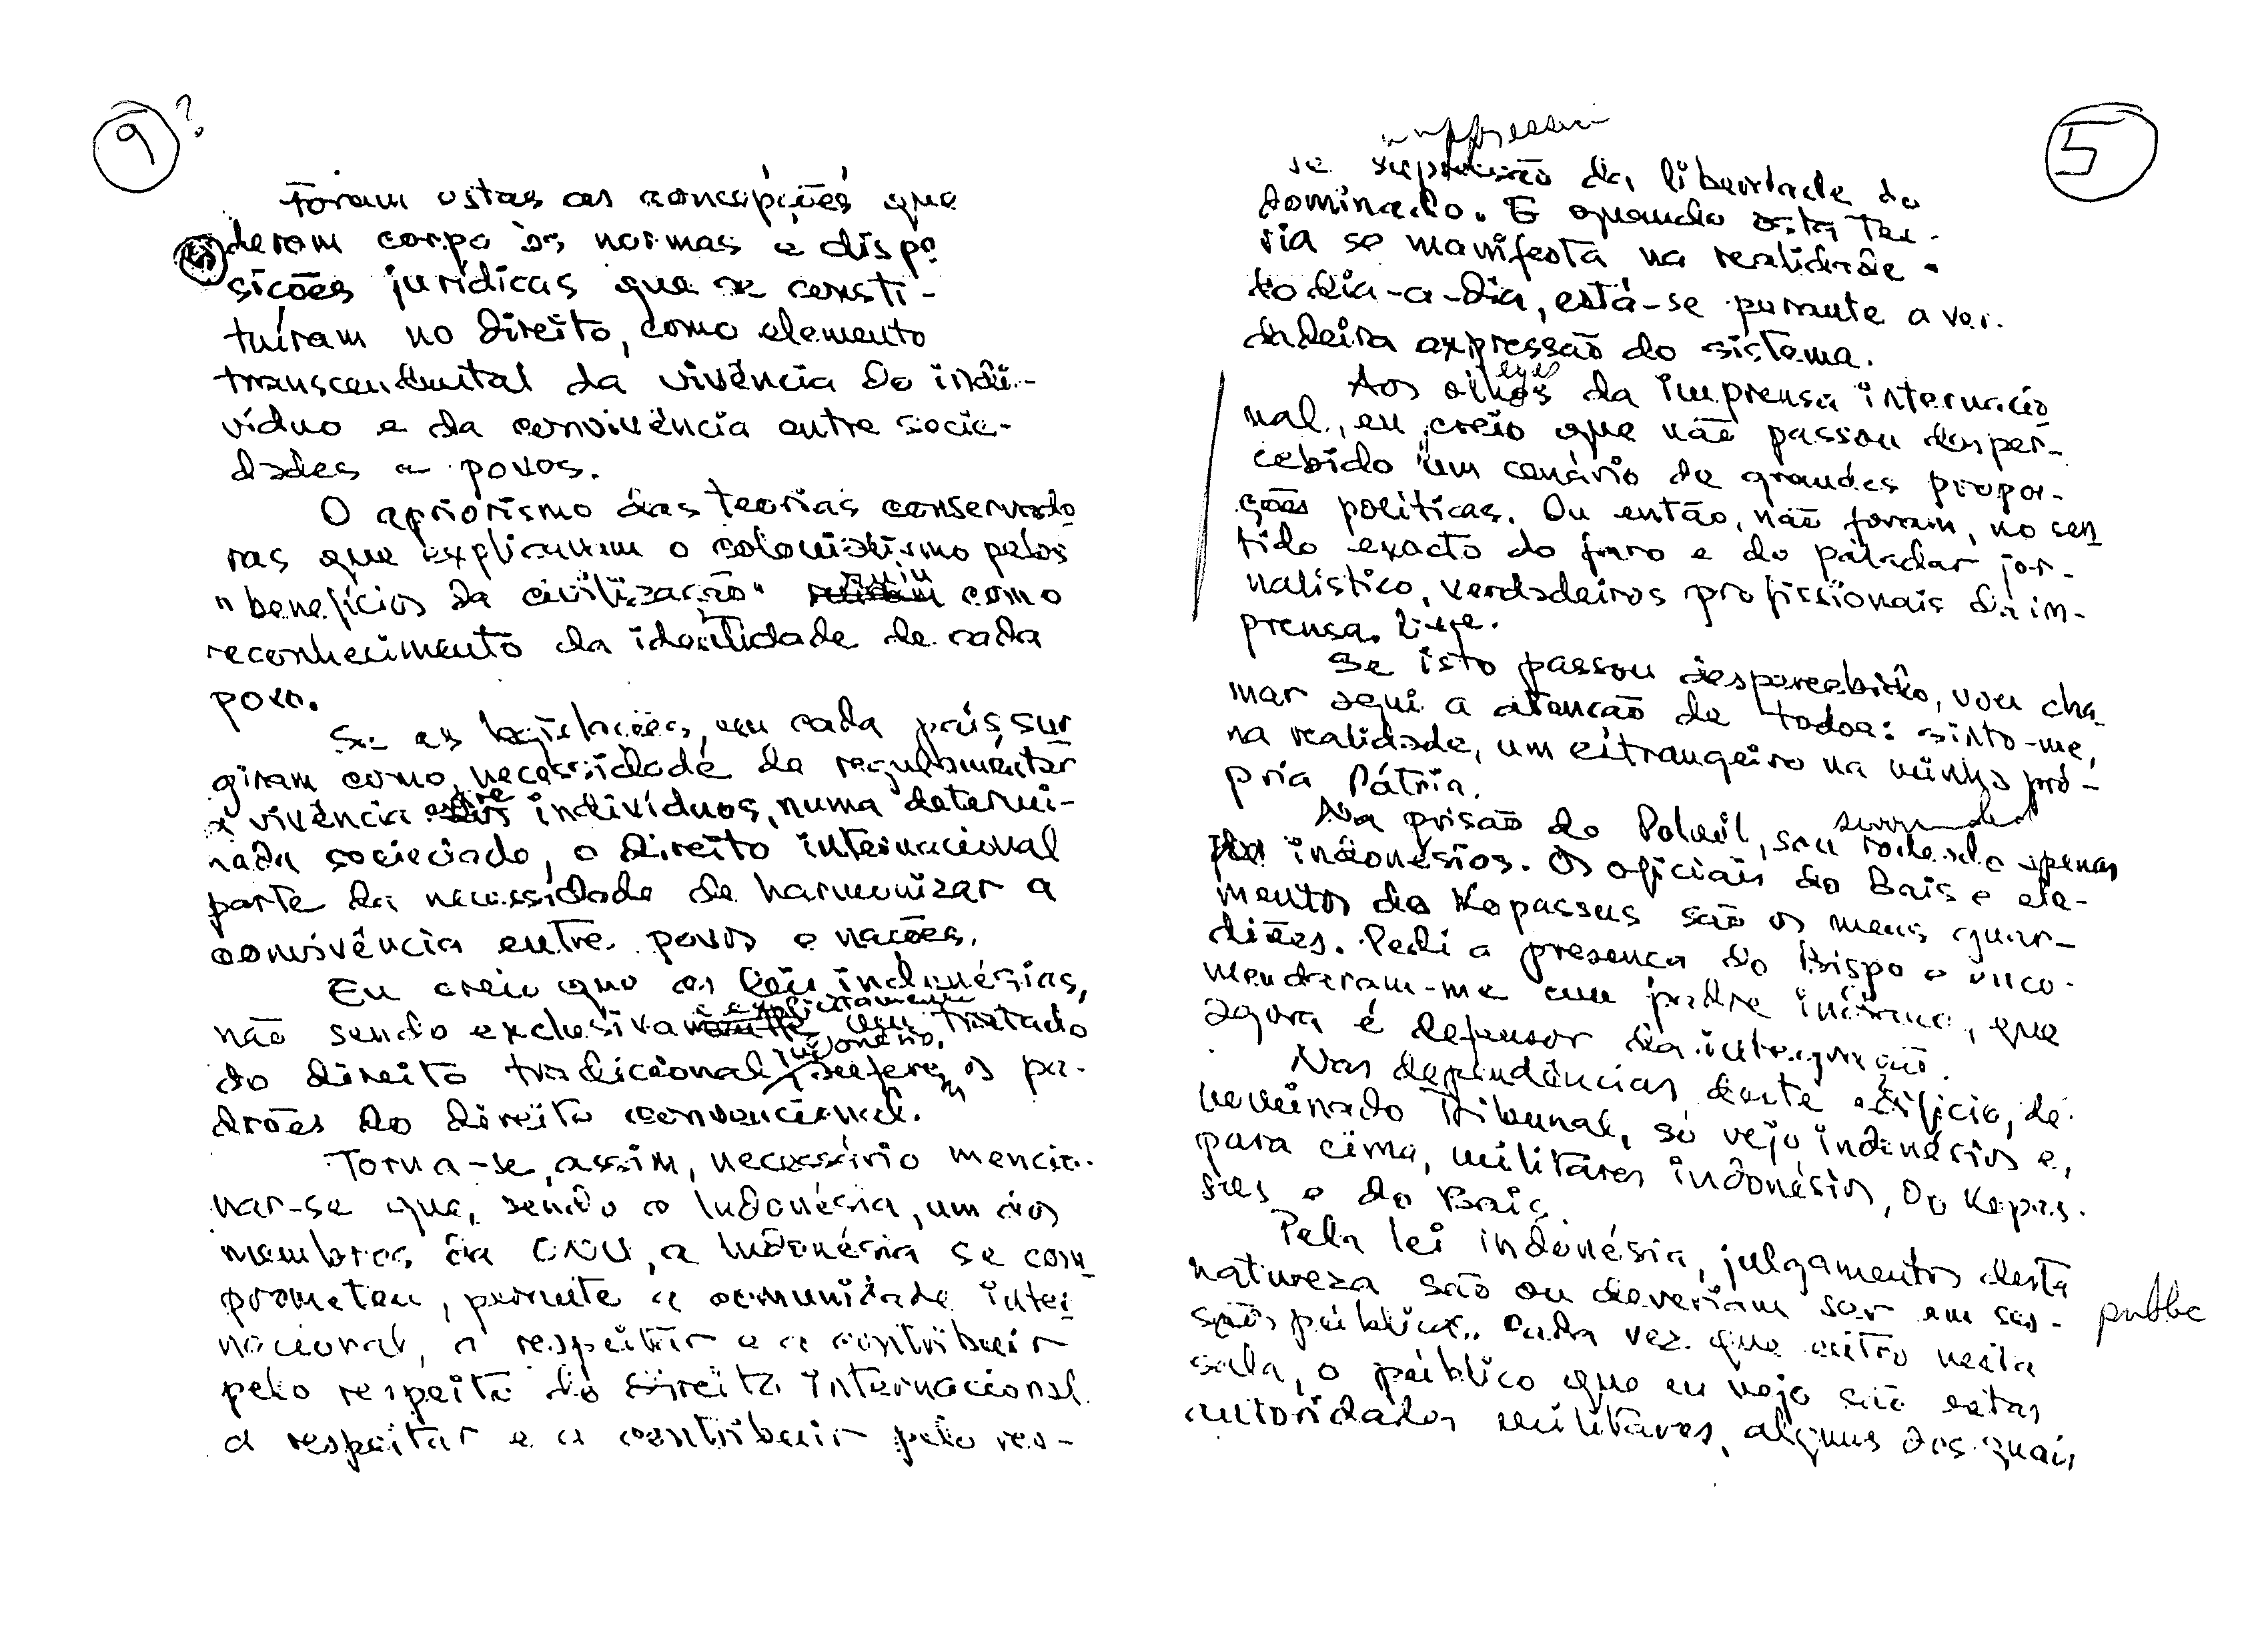 9 ?
Foram estas as concepções que
deram corpo às normas e dispo
sições jurídicas que se consti-
tuíram no direito, como elemento
transcendental da vivência do indi-
víduo e da convivência entre socie-
dades e povos.
O apriorismo das teorias conservado
ras que explicavam o colonialismo pelos
"benefícios da civilização" ruiu como
reconhecimento da identidade de cada
povo.
Se as legislações, em cada país, sur
giram como necessidade de regulamentar
a vivência entre indivíduos, numa determi-
nada sociedade, o direito internacional
parte da necessidade de harmonizar a
convivência entre povos e nações.
Eu creio que as leis indonésias,
não sendo exclusiva e explicitamente um tratado
do direito tradicional indonésio, os pa-
drões do direito convencional.
Torna-se, assim, necessário mencio-
nar-se que, sendo a Indonésia, um dos
membros da ONU, a Indonésia se com
prometeu, perante a comunidade inter
nacional, a respeitar e a contribuir
pelo respeito do direito internacional
a respeitar e a contribuir pelo res-
5
suppression
se supressão da liberdade do
dominado. E quando esta teo-
ria se manifesta na realidade
do dia-a-dia, está-se perante a ver-
dadeira expressão do sistema.
eyes
Aos olhos da imprensa internacio
nal, eu creio que não passou desper-
cebido um cenário de grandes propor-
ções políticas. Ou então, não foram, no sen
tido exacto do furo e do paladar jor-
nalístico, verdadeiros profissionais da im-
prensa livre.
Se isto passou despercebido, vou cha
mar aqui a atenção de todos: sinto-me,
na realidade, um estrangeiro na minha pró-
pria Pátria.
surrounded
Na prisão do Polwil, sou rodeado apenas
por indonésios. Os oficiais do Bais e ele-
mentos do Kopassus são os meus guar-
diães. Pedi a presença do Bispo e enco-
mendaram-me um padre indiano, que
agora é defensor da integração.
Nas dependências deste edifício, de-
nominado Tribunal, só vejo indonésios e,
para cima, militares indonésios, do Kopas-
sus e do Bais.
Pela lei indonésia, julgamentos desta
natureza são ou deveriam ser em ses-
sões públicas. Cada vez que entro nesta
public
sala, o público que eu vejo são estas
autoridades militares, alguns dos quais